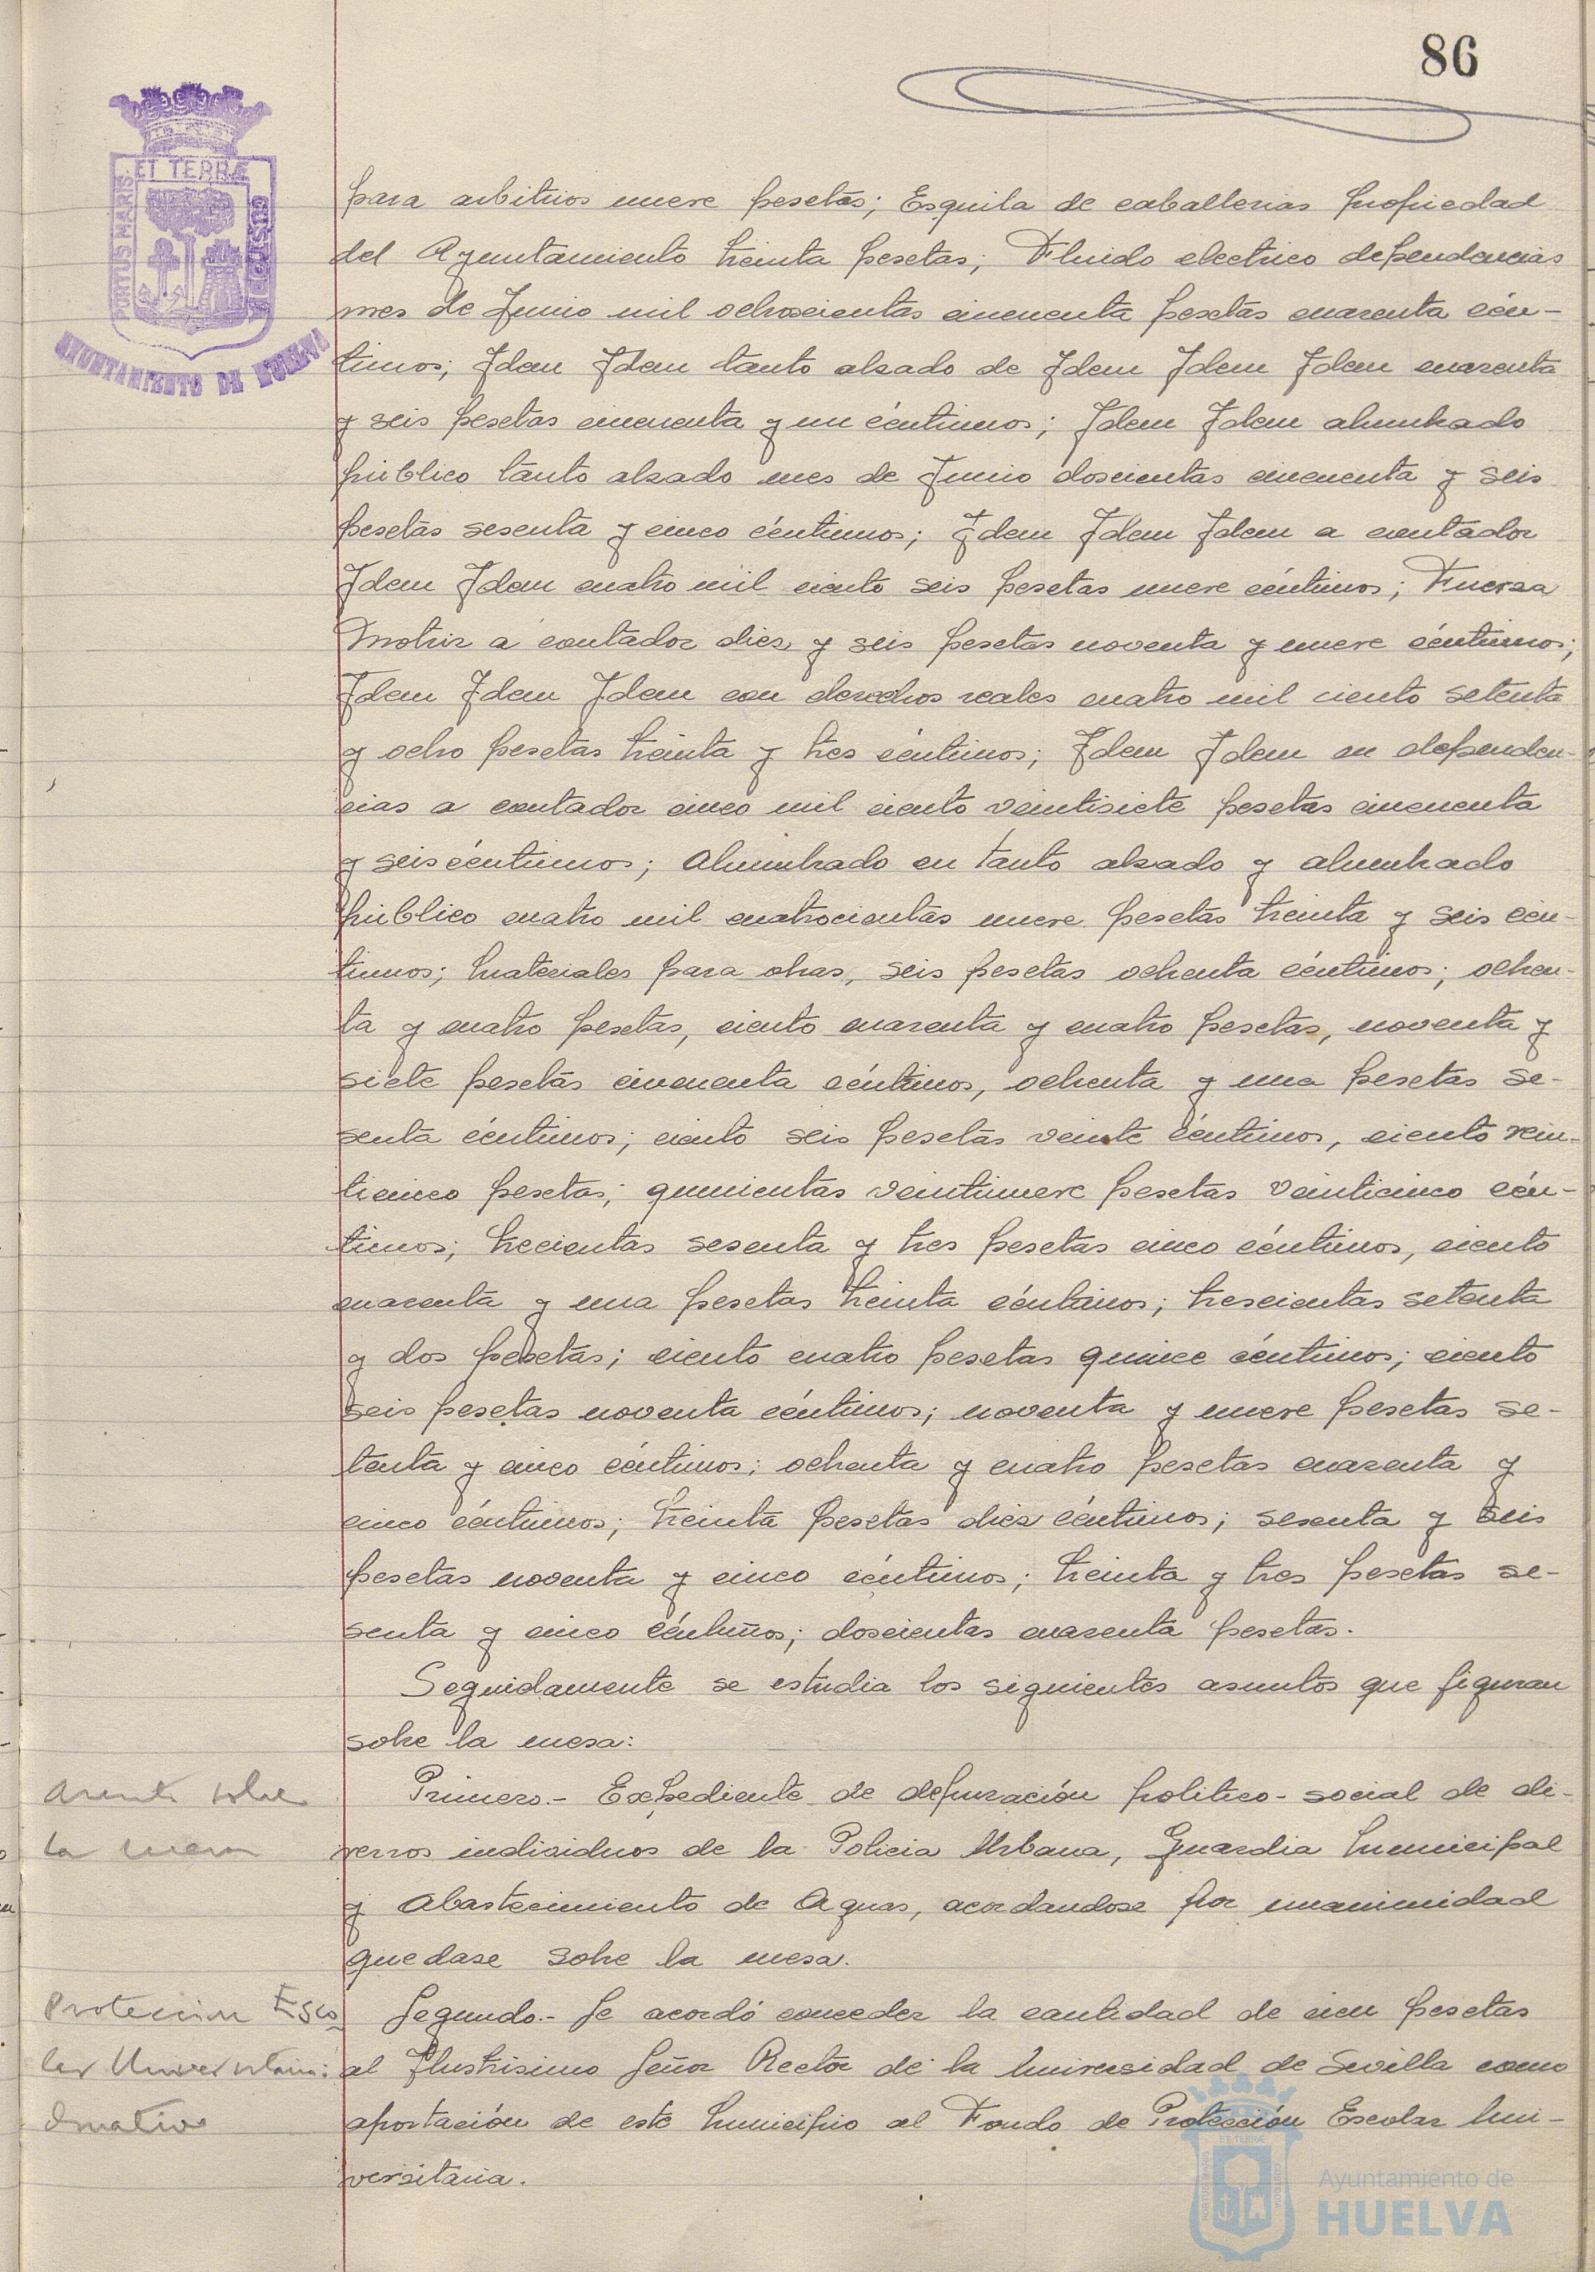 86
PORTUS MARIS
ET TERRÆ
CUSTODIA
AYUNTAMIENTO DE HUELVA
para arbitrios nueve pesetas; Esquila de caballerias propiedad
del Ayuntamiento treinta pesetas; Fluido electrico dependencias
mes de Junio mil ochocientas cincuenta pesetas cuarenta cén-
timos; Idem Idem tanto alzado de Idem Idem Idem cuarenta
y seis pesetas cincuenta y un céntimos; Idem Idem alumbrado
público tanto alzado mes de Junio doscientas cincuenta y seis
pesetas sesenta y cinco céntimos; Idem Idem Idem a contador
Idem Idem cuatro mil ciento seis pesetas nueve céntimos; Fuerza
Motriz a contador diez y seis pesetas noventa y nueve céntimos;
Idem Idem Idem con derechos reales cuatro mil ciento setenta
y ocho pesetas treinta y tres céntimos; Idem Idem en dependen-
cias a contador cinco mil ciento veintisiete pesetas cincuenta
y seis céntimos; Alumbrado en tanto alzado y alumbrado
público cuatro mil cuatrocientas nueve pesetas treinta y seis cén-
timos; Materiales para obras, seis pesetas ochenta céntimos; ochen-
ta y cuatro pesetas, ciento cuarenta y cuatro pesetas, noventa y
siete pesetas cincuenta céntimos, ochenta y una pesetas se-
senta céntimos; ciento seis pesetas veinte céntimos, ciento vein-
ticinco pesetas; quinientas veintinueve pesetas veinticinco cén-
timos; trecientas sesenta y tres pesetas cinco céntimos, ciento
cuarenta y una pesetas treinta céntimos; trescientas setenta
y dos pesetas; ciento cuatro pesetas quince céntimos; ciento
seis pesetas noventa céntimos; noventa y nueve pesetas se-
tenta y cinco céntimos; ochenta y cuatro pesetas cuarenta y
cinco céntimos; treinta pesetas diez céntimos; sesenta y seis
pesetas noventa y cinco céntimos; treinta y tres pesetas se-
senta y cinco céntimos; doscientas cuarenta pesetas.
Seguidamente se estudia los siguientes asuntos que figuran
sobre la mesa:
Asunto sobre
la mesa
Primero.- Expediente de depuración politico-social de di-
versos individuos de la Policia Urbana, Guardia Municipal
y Abastecimiento de Aguas, acordandose por unanimidad
quedase sobre la mesa.
Proteccion Esco
lar Universitaria:
Donativo
Segundo.- Se acordó conceder la cantidad de cien pesetas
al Ilustrisimo Señor Rector de la Universidad de Sevilla como
aportación de este Municipio al Fondo de Protección Escolar Uni-
versitaria.
Ayuntamiento de
HUELVA